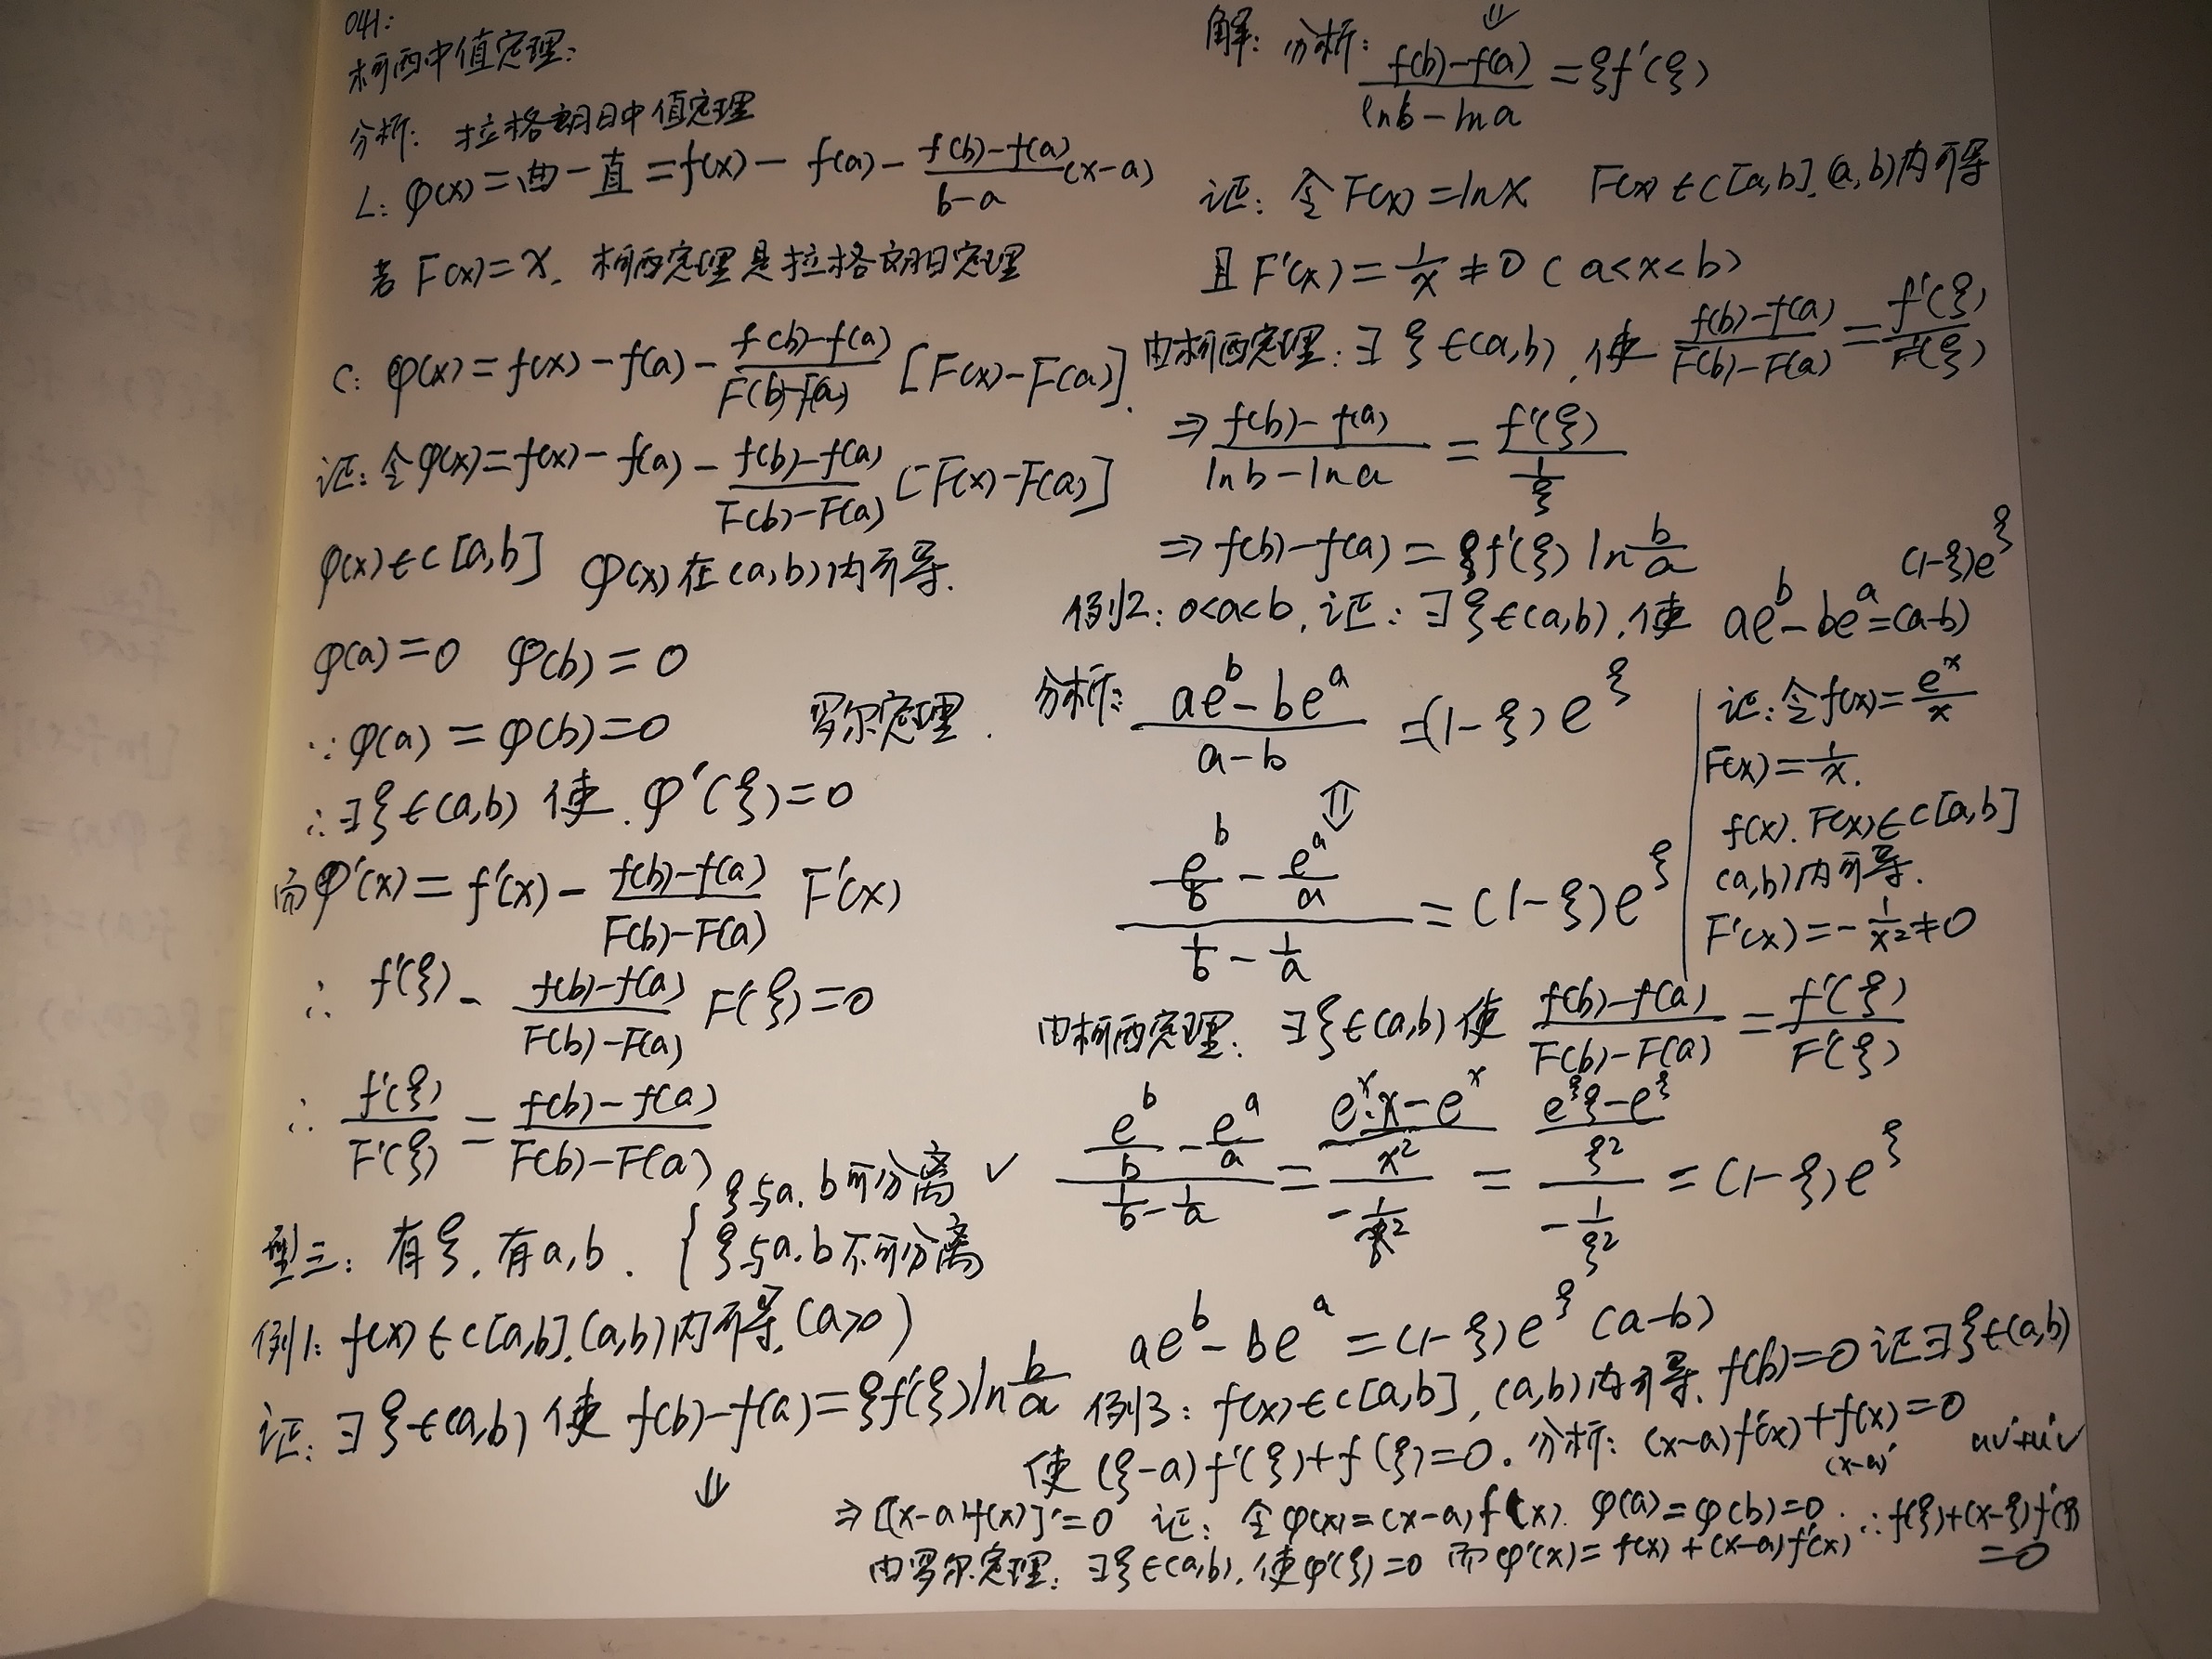 041:
柯西中值定理:
分析: 拉格朗日中值定理
L: φ(x)=曲-直=f(x)- f(a)- \frac{f(b)-f(a)}{b-a}(x-a)
若 F(x)=x. 柯西定理是拉格朗日定理
C: φ(x)=f(x)-f(a)-\frac{f(b)-f(a)}{F(b)-F(a)} [F(x)-F(a)].
证: 令φ(x)=f(x)-f(a)-\frac{f(b)-f(a)}{F(b)-F(a)} [F(x)-F(a)]
φ(x)∈C[a,b] φ(x)在(a,b)内可导.
φ(a)=0 φ(b)=0
∵φ(a)=φ(b)=0 罗尔定理.
∴∃ξ∈(a,b) 使. φ'(ξ)=0
而φ'(x)=f'(x)-\frac{f(b)-f(a)}{F(b)-F(a)} F'(x)
∴ f'(ξ)-\frac{f(b)-f(a)}{F(b)-F(a)} F'(ξ)=0
∴ \frac{f'(ξ)}{F'(ξ)}=\frac{f(b)-f(a)}{F(b)-F(a)}
ξ与a.b可分离 ✓
型三: 有ξ, 有a,b. { ξ与a.b不可分离
例1: f(x)∈C[a,b].(a,b)内可导.(a>0)
证: ∃ξ∈(a,b) 使 f(b)-f(a)=ξf'(ξ)ln\frac{b}{a}
⇓
⇓
解: 分析: \frac{f(b)-f(a)}{lnb-lna}=ξf'(ξ)
证: 令F(x)=lnx F(x)∈C[a,b].(a,b)内可导
且F'(x)=\frac{1}{x}≠0 (a<x<b)
由柯西定理: ∃ξ∈(a,b), 使 \frac{f(b)-f(a)}{F(b)-F(a)}=\frac{f'(ξ)}{F'(ξ)}
⇒\frac{f(b)-f(a)}{lnb-lna}=\frac{f'(ξ)}{\frac{1}{ξ}}
⇒f(b)-f(a)=ξf'(ξ) ln\frac{b}{a}
(1-ξ)e^ξ
例2: 0<a<b, 证: ∃ξ∈(a,b), 使 ae^b-be^a=(a-b)
分析: \frac{ae^b-be^a}{a-b}=(1-ξ)e^ξ
⇕
\frac{\frac{e^b}{b}-\frac{e^a}{a}}{\frac{1}{b}-\frac{1}{a}}=(1-ξ)e^ξ
证: 令f(x)=\frac{e^x}{x}
F(x)=\frac{1}{x}.
f(x).F(x)∈C[a,b]
(a,b)内可导.
F'(x)=-\frac{1}{x^2}≠0
由柯西定理. ∃ξ∈(a,b) 使 \frac{f(b)-f(a)}{F(b)-F(a)}=\frac{f'(ξ)}{F'(ξ)}
\frac{\frac{e^b}{b}-\frac{e^a}{a}}{\frac{1}{b}-\frac{1}{a}}=\frac{\frac{e^x·x-e^x}{x^2}}{-\frac{1}{x^2}}=\frac{\frac{e^ξξ-e^ξ}{ξ^2}}{-\frac{1}{ξ^2}}=(1-ξ)e^ξ
ae^b-be^a=(1-ξ)e^ξ(a-b)
例3: f(x)∈C[a,b], (a,b)内可导. f(b)=0 证∃ξ∈(a,b)
使 (ξ-a)f'(ξ)+f(ξ)=0. 分析: (x-a)f'(x)+f(x)=0 uv'+u'v
(x-a)'
⇒[(x-a)f(x)]'=0 证: 令φ(x)=(x-a)f(x). φ(a)=φ(b)=0. ∴f(ξ)+(x-ξ)f'(ξ)
由罗尔定理: ∃ξ∈(a,b). 使φ'(ξ)=0 而φ'(x)=f(x)+(x-a)f'(x) =0